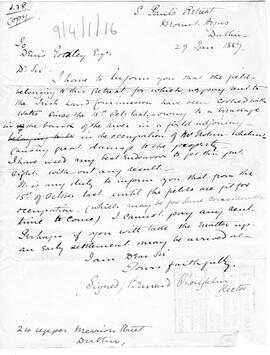 (Copy)
9/4/1/16
S. Paul's Retreat
Mount Argus
Dublin
29 Jan. 1887.
To
Denis Godley Esqre
Dr Sir
I have to inform you that the fields
belonging to this Retreat for which we pay rent to
the Irish Land Commission have been covered with
water since the 15th Octr last, owing to a breakage
in the bank of the river in a field adjoining
in the occupation of Mr
causing great damage to the property.
I have used my best endeavours to get this put
right, without any result.
It is my duty to inform you that from the
15th of October last until the fields are fit for
occupation (which may be for some considerable
time to come) I cannot pay any rent.
Perhaps if you will take the matter up
an early settlement may be arrived at
I am Dear Sir
Yours faithfully
(Signed)
Rector
24 Upper Merrion Street
Dublin,